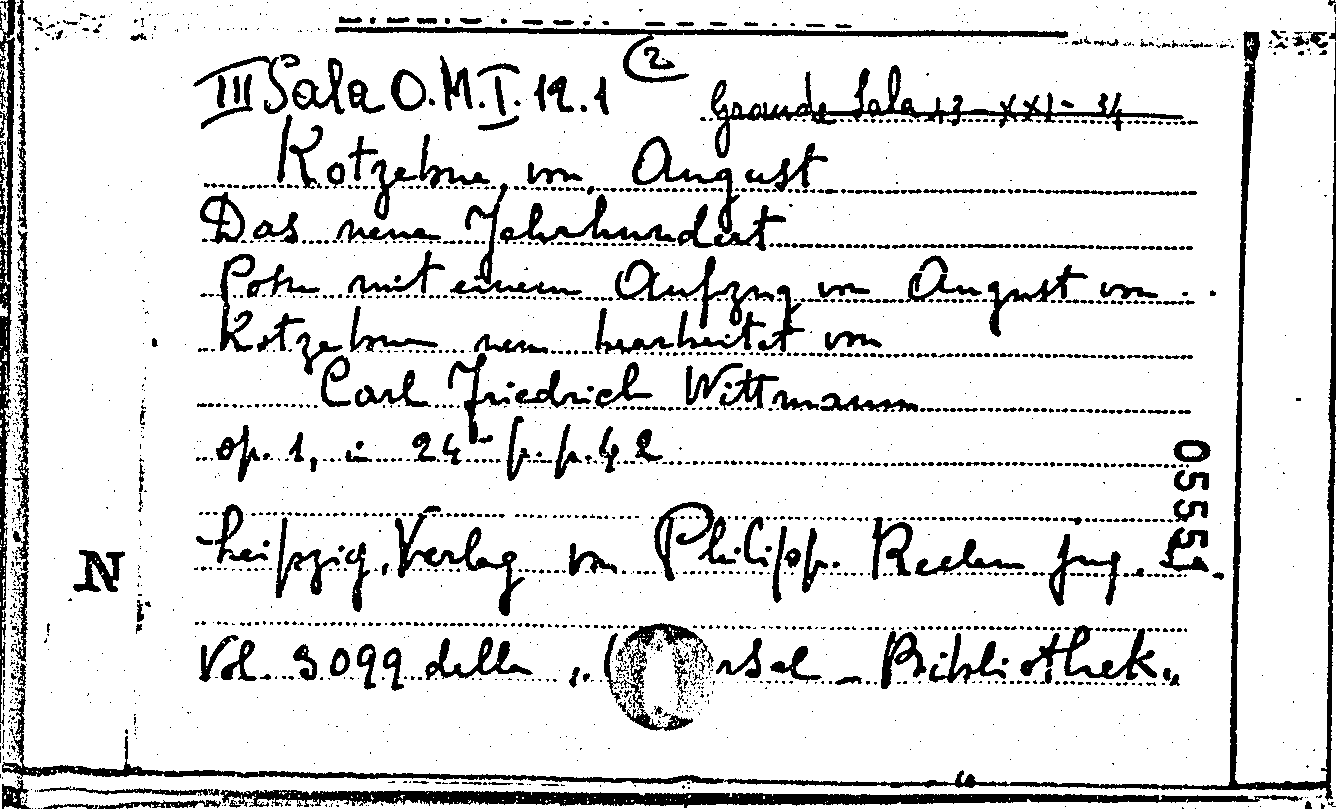 III Sala O.M.I.12.1 (2) Grande Sala 43-XXI-34
Kotzebue, von, August
Das neue Jahrhundert
Posse mit einem Aufzug von August von
Kotzebue neu bearbeitet von
Carl Friedrich Wittmann
op. 1, in 24° p.p. 42
Leipzig, Verlag von Philipp. Reclam jug.
Vol. 3099 della „ rsal - Bibliothek„
N
05551